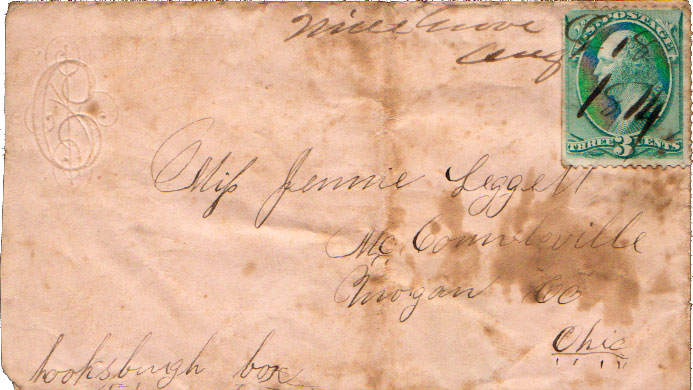 Aug
U.S. POSTAGE
THREE 3 CENTS
Miss Jennie Leggett
Mc Connelsville
Morgan Co
Ohio
hooksburgh box